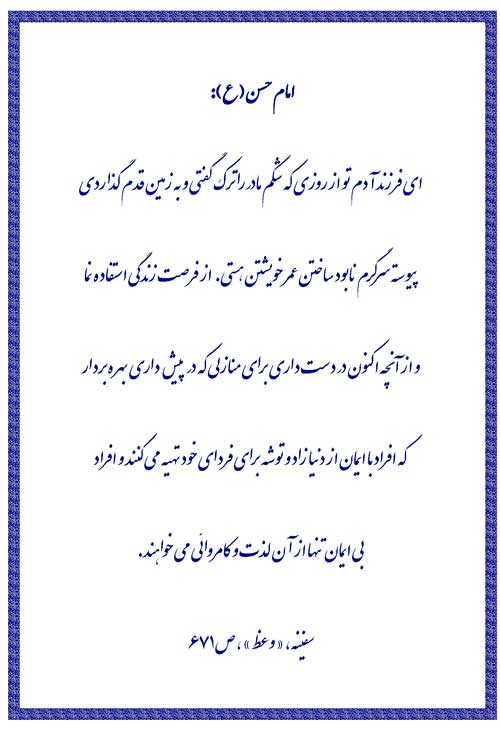 امام حسن (ع):
ای فرزند آدم تو از روزی که شکم مادر را ترک گفتی و به زمین قدم گذاردی
پیوسته سرگرم نابود ساختن عمر خویشتن هستی. از فرصت زندگی استفاده نما
و از آنچه اکنون در دست داری برای منازلی که در پیش داری بهره بردار
که افراد با ایمان از دنیا زاد و توشه برای فردای خود تهیه می کنند و افراد
بی ایمان تنها از آن لذت و کامروائی می خواهند.
سفینه، «وعظ»، ص ۶۷۱